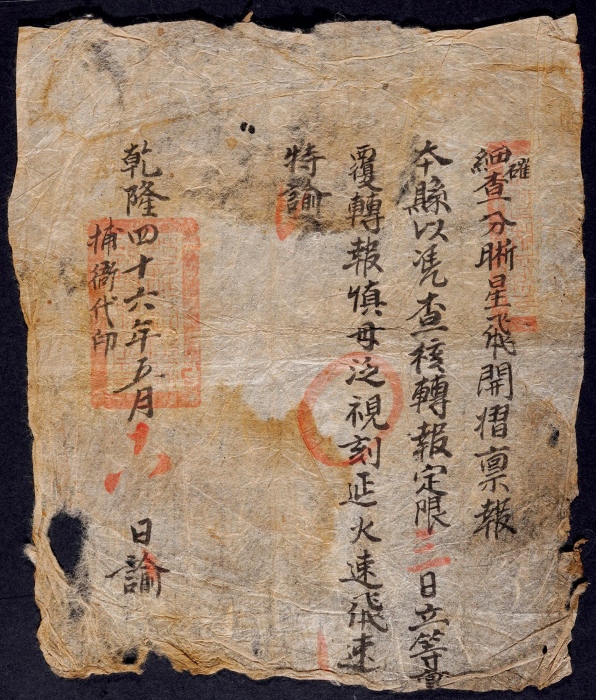 細確查分晰星飛開摺稟報
本縣以凭查核轉報定限三日立等
覆轉報慎毋泛視刻延火速飛速
特諭
乾隆四十六年五月十六日諭
捕衙代印